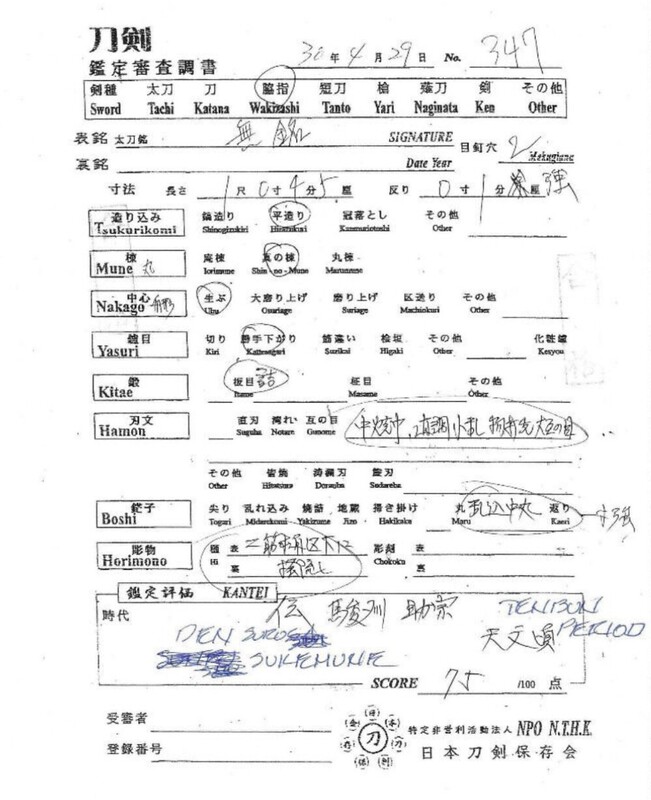 刀剣
鑑定審査調書 30年4月29日 No. 347
剣種 太刀 刀 脇指 短刀 槍 薙刀 剣 その他
Sword Tachi Katana Wakizashi Tanto Yari Naginata Ken Other
表銘 太刀銘 無銘 SIGNATURE 目釘穴 2 Mekugiana
裏銘 Date Year
寸法 長さ 1尺0寸4分5厘 反り 0寸1分 厘強
造り込み 鎬造り 平造り 冠落とし その他
Tsukurikomi Shinogizukiri Hirazukuri Kanmuriotoshi Other
棟 庵棟 真の棟 丸棟
Mune 丸 Iorimune Shin-no-Mune Marumune
中心 生ぶ 大磨り上げ 磨り上げ 区送り その他
Nakago 舟形 Ubu Osuriage Suriage Machiokuri Other
鑢目 切り 勝手下がり 筋違い 桧垣 その他 化粧鑢
Yasuri Kiri Kattesagari Sujikai Higaki Other Kesyou
鍛 板目 詰 柾目 その他
Kitae Itame Masame Other
刃文 直刃 湾れ 互の目
Hamon Suguha Notare Gunome
その他 皆焼 涛瀾刃 簾刃
Other Hitatsura Doranba Sudareba
鋩子 尖り 乱れ込み 焼詰 地蔵 掃き掛け 丸 乱込中丸 返り
Boshi Togari Midarekomi Yakizume Jizo Hakikake Maru Kaeri
彫物 樋 表 彫刻 表
Horimono Hi 裏 Chokoku 裏
鑑定評価 KANTEI
時代 伝 駿州 助宗 TENBUN
天文頃 PERIOD
DEN
SUKEMUNE
SCORE 75 /100 点
受審者
登録番号
刀
特定非営利活動法人 NPO N.T.H.K.
日本刀剣保存会